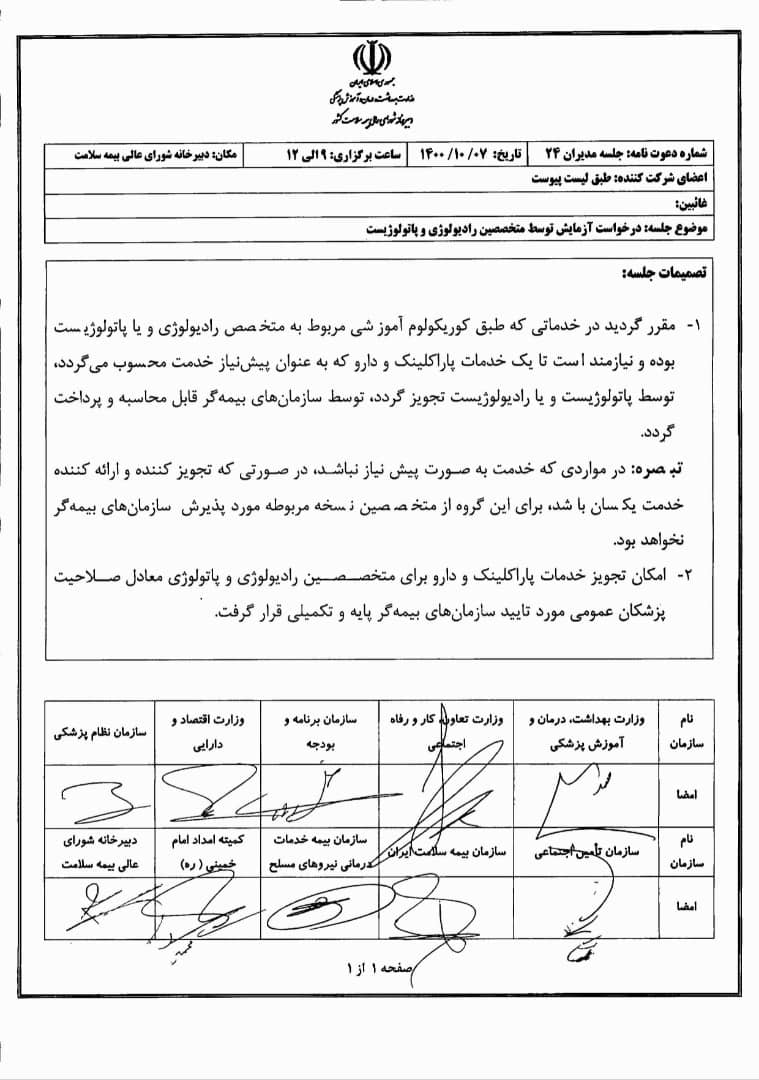 جمهوری اسلامی ایران
وزارت بهداشت، درمان و آموزش پزشکی
دبیرخانه شورای عالی بیمه سلامت کشور
شماره دعوت نامه: جلسه مدیران ۲۴ تاریخ: ۱۴۰۰/۱۰/۰۷ ساعت برگزاری: ۹ الی ۱۲ مکان: دبیرخانه شورای عالی بیمه سلامت
اعضای شرکت کننده: طبق لیست پیوست
غائبین:
موضوع جلسه: درخواست آزمایش توسط متخصصین رادیولوژی و پاتولوژیست
تصمیمات جلسه:
۱- مقرر گردید در خدماتی که طبق کوریکولوم آموزشی مربوط به متخصص رادیولوژی و یا پاتولوژیست
بوده و نیازمند است تا یک خدمات پاراکلینک و دارو که به عنوان پیش‌نیاز خدمت محسوب می‌گردد،
توسط پاتولوژیست و یا رادیولوژیست تجویز گردد، توسط سازمان‌های بیمه‌گر قابل محاسبه و پرداخت
گردد.
تبصره: در مواردی که خدمت به صورت پیش نیاز نباشد، در صورتی که تجویز کننده و ارائه کننده
خدمت یکسان باشد، برای این گروه از متخصصین نسخه مربوطه مورد پذیرش سازمان‌های بیمه‌گر
نخواهد بود.
۲- امکان تجویز خدمات پاراکلینک و دارو برای متخصصین رادیولوژی و پاتولوژی معادل صلاحیت
پزشکان عمومی مورد تایید سازمان‌های بیمه‌گر پایه و تکمیلی قرار گرفت.
نام سازمان وزارت بهداشت، درمان و آموزش پزشکی وزارت تعاون، کار و رفاه اجتماعی سازمان برنامه و بودجه وزارت اقتصاد و دارایی سازمان نظام پزشکی
امضا
نام سازمان سازمان تأمین اجتماعی سازمان بیمه سلامت ایران سازمان بیمه خدمات درمانی نیروهای مسلح کمیته امداد امام خمینی (ره) دبیرخانه شورای عالی بیمه سلامت
امضا
صفحه ۱ از ۱